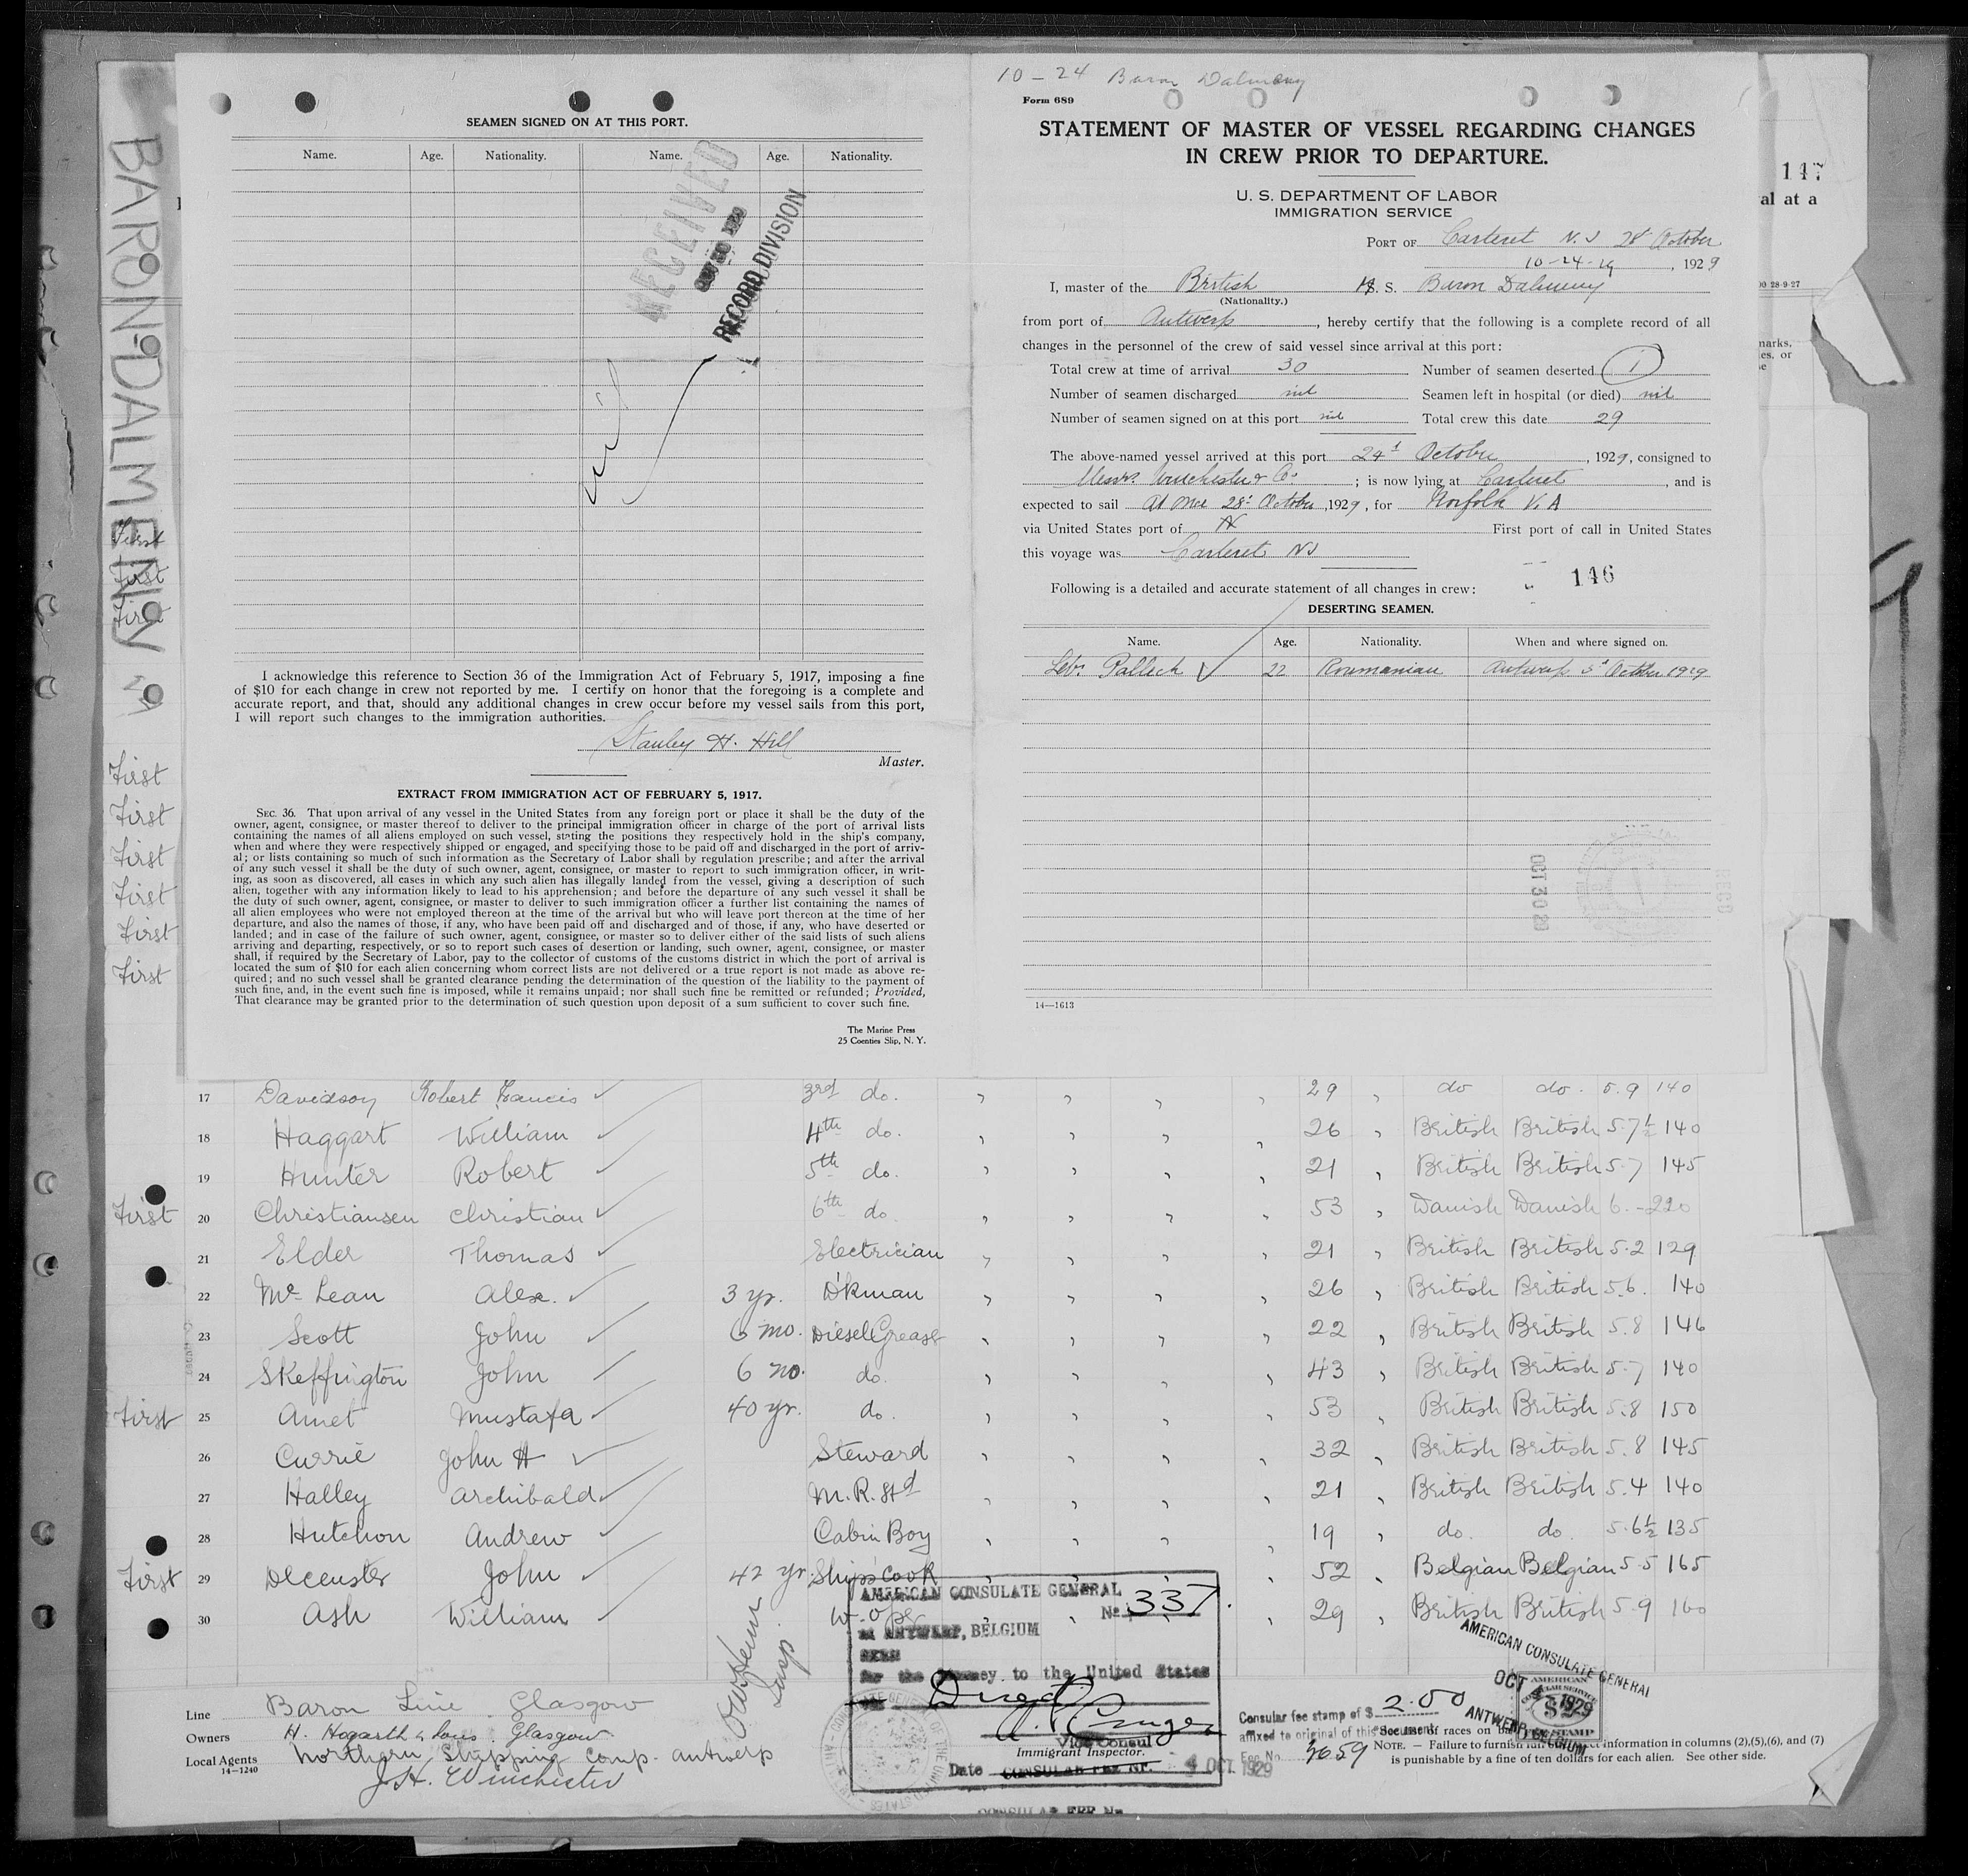 BARON DALMENY
SEAMEN SIGNED ON AT THIS PORT.
Name. Age. Nationality. Name. Age. Nationality.
RECEIVED
RECORD DIVISION
nil
I acknowledge this reference to Section 36 of the Immigration Act of February 5, 1917, imposing a fine
of $10 for each change in crew not reported by me. I certify on honor that the foregoing is a complete and
accurate report, and that, should any additional changes in crew occur before my vessel sails from this port,
I will report such changes to the immigration authorities.
Stanley H. Hill
Master.
EXTRACT FROM IMMIGRATION ACT OF FEBRUARY 5, 1917.
SEC. 36. That upon arrival of any vessel in the United States from any foreign port or place it shall be the duty of the
owner, agent, consignee, or master thereof to deliver to the principal immigration officer in charge of the port of arrival lists
containing the names of all aliens employed on such vessel, stating the positions they respectively hold in the ship's company,
when and where they were respectively shipped or engaged, and specifying those to be paid off and discharged in the port of arriv-
al; or lists containing so much of such information as the Secretary of Labor shall by regulation prescribe; and after the arrival
of any such vessel it shall be the duty of such owner, agent, consignee, or master to report to such immigration officer, in writ-
ing, as soon as discovered, all cases in which any such alien has illegally landed from the vessel, giving a description of such
alien, together with any information likely to lead to his apprehension; and before the departure of any such vessel it shall be
the duty of such owner, agent, consignee, or master to deliver to such immigration officer a further list containing the names of
all alien employees who were not employed thereon at the time of the arrival but who will leave port thereon at the time of her
departure, and also the names of those, if any, who have been paid off and discharged and of those, if any, who have deserted or
landed; and in case of the failure of such owner, agent, consignee, or master so to deliver either of the said lists of such aliens
arriving and departing, respectively, or so to report such cases of desertion or landing, such owner, agent, consignee, or master
shall, if required by the Secretary of Labor, pay to the collector of customs of the customs district in which the port of arrival is
located the sum of $10 for each alien concerning whom correct lists are not delivered or a true report is not made as above re-
quired; and no such vessel shall be granted clearance pending the determination of the question of the liability to the payment of
such fine, and, in the event such fine is imposed, while it remains unpaid; nor shall such fine be remitted or refunded; Provided,
That clearance may be granted prior to the determination of such question upon deposit of a sum sufficient to cover such fine.
The Marine Press
25 Coenties Slip, N. Y.
10 - 24 Baron Dalmeny
Form 689
STATEMENT OF MASTER OF VESSEL REGARDING CHANGES
IN CREW PRIOR TO DEPARTURE.
U. S. DEPARTMENT OF LABOR
IMMIGRATION SERVICE
PORT OF Carteret N.J 28 October
10-24-29, 1929
I, master of the British S. S. Baron Dalmeny
(Nationality.)
from port of Antwerp, hereby certify that the following is a complete record of all
changes in the personnel of the crew of said vessel since arrival at this port:
Total crew at time of arrival 30 Number of seamen deserted 1
Number of seamen discharged nil Seamen left in hospital (or died) nil
Number of seamen signed on at this port nil Total crew this date 29
The above-named vessel arrived at this port 24t October, 1929, consigned to
Messrs. Winchester & Co.; is now lying at Carteret, and is
expected to sail At once 28t October, 1929, for Norfolk V.A
via United States port of First port of call in United States
this voyage was Carteret NJ
146
Following is a detailed and accurate statement of all changes in crew:
DESERTING SEAMEN.
Name. Age. Nationality. When and where signed on.
Pallech 22 Roumanian Antwerp 3d October 1929
OCT 30 29
RECD
14—1613
147
al at a
28-9-27
marks,
es, or
e
First
First
First
First
First
First
First
First
First
17 Davidson Robert Francis 3rd do. 29 do do. 5.9 140
18 Haggart William 4th do. 26 British British 5.7½ 140
19 Hunter Robert 5th do. 21 British British 5.7 145
First 20 Christiansen Christian 6th do. 53 Danish Danish 6.- 220
21 Elder Thomas Electrician 21 British British 5.2 129
22 Mc Lean Alex. 3 yr. D'kman 26 British British 5.6. 140
23 Scott John 6 mo. Diesel Greaser 22 British British 5.8 146
24 Skeffington John 6 mo. do. 43 British British 5.7 140
First 25 Amet Mustafa 40 yr. do. 53 British British 5.8 150
26 Currie John H Steward 32 British British 5.8 145
27 Halley Archibald M.R. Std 21 British British 5.4 140
28 Hutchon Andrew Cabin Boy 19 do. do. 5.6½ 135
First 29 Deceuster John 42 yr. Ships Cook 52 Belgian Belgian 5.5 165
30 Ash William W. Oper 29 British British 5.9 160
AMERICAN CONSULATE GENERAL
No 337.
at ANTWERP, BELGIUM
SEEN
for the journey to the United States
Direct
Vice Consul
Immigrant Inspector.
Date CONSULAR FEE Nr. 4 OCT. 1929
CONSULAR FEE No
Insp.
Consular fee stamp of $ 2.00
affixed to original of this document
Fee No. 3659
AMERICAN CONSULATE GENERAL
OCT 4 1929
ANTWERP, BELGIUM
AMERICAN
CONSULAR SERVICE
$2
FEE STAMP
Line Baron Line Glasgow
Owners H. Hogarth & Sons. Glasgow.
Local Agents Northern Shipping Comp. Antwerp
14—1240
J.H. Winchester
See list of races on
NOTE. — Failure to furnish information in columns (2),(5),(6), and (7)
is punishable by a fine of ten dollars for each alien. See other side.